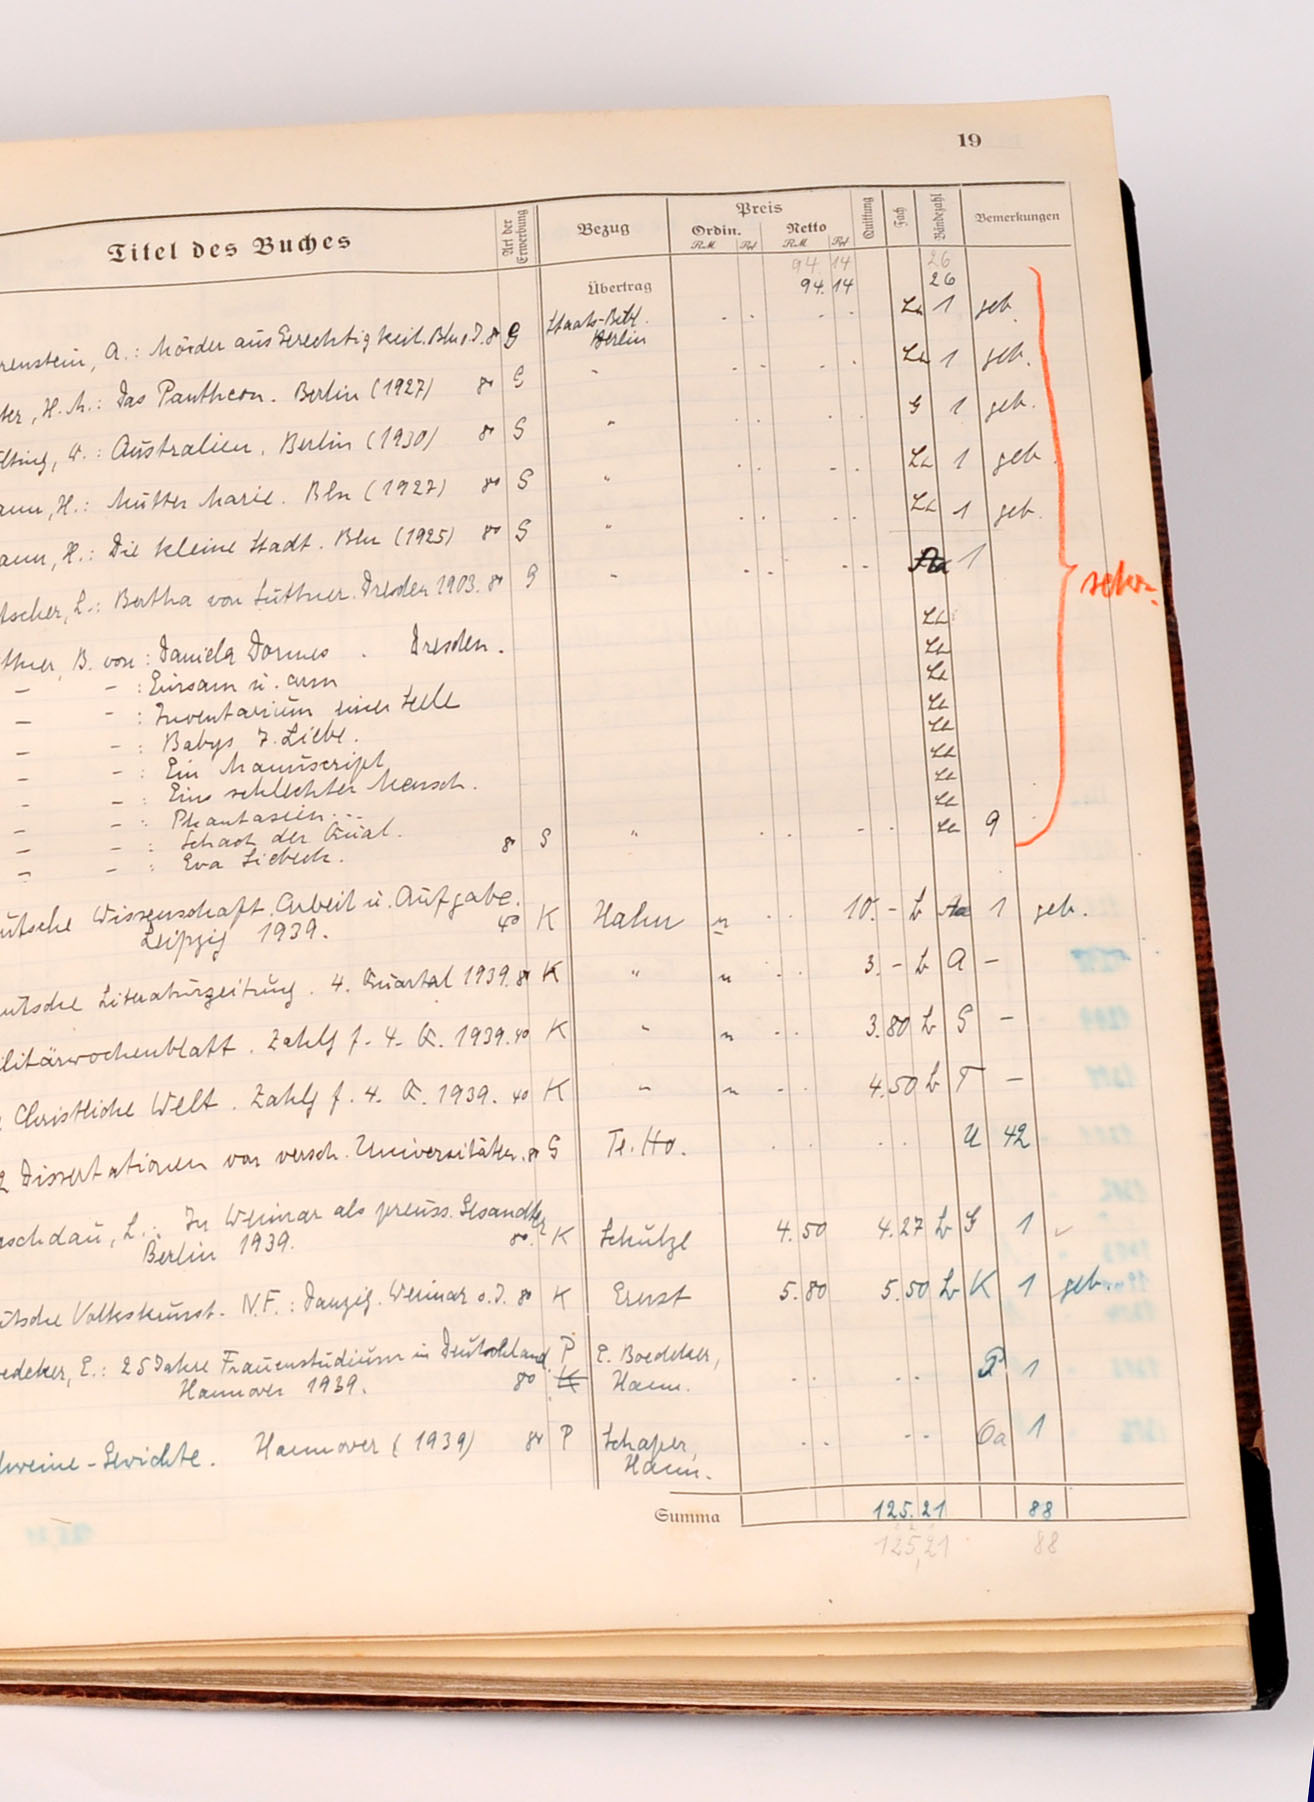 19
Titel des Buches Art der Erwerbung Bezug Preis Quittung Fach Bändezahl Bemerkungen
Ordin. Netto
RM. Rpf RM. Rpf
94 14 26
Übertrag 94. 14 26
renstein, A.: Mörder aus Gerechtigkeit. Bln o.J. 8° G Staats-Bibl. Berlin Ll 1 geb.
ter, H. M.: Das Pantheon. Berlin (1927) 8° G " Ll 1 geb.
lting, W.: Australien. Berlin (1930) 8° G " G 1 geb.
ann, H.: Mutter Marie. Bln (1927) 8° G " Ll 1 geb.
ann, H.: Die kleine Stadt. Bln (1925) 8° G " Ll 1 geb.
tscher, L.: Bertha von Suttner. Dresden 1903. 8° G " Aa 1
ttner, B. von: Daniela Dormes. Dresden. Ll
– – : Einsam u. arm Ll
– – : Inventarium einer Seele Ll
– – : Babys 7. Liebe. Ll
– – : Ein Manuscript Ll
– – : Eins schlechter Mensch. Ll
– – : Phantasien... Ll
– – : Schach der Qual. Ll
– – : Eva Siebeck. 8° G " Ll 9
utsche Wissenschaft. Arbeit u. Aufgabe.
Leipzig 1939. 4° K Hahn n 10. – L Aa 1 geb.
utsche Literaturzeitung. 4. Quartal 1939. 8° K " n 3. – L A –
ilitärwochenblatt. Zahlg f. 4. Q. 1939. 4° K " n 3.80 L G –
Christliche Welt. Zahlg f. 4. Q. 1939. 4° K " n 4.50 L T –
2 Dissertationen von versch. Universitäten. 8° G Te. Ho. U 42
aschdau, L.: In Weimar als preuss. Gesandter
Berlin 1939. 8° K Schulze 4.50 4.27 L G 1
utsche Volkskunst. N.F.: Danzig. Weimar o.J. 8° K Ernst 5.80 5.50 L K 1 geb.
edeker, E.: 25 Jahre Frauenstudium in Deutschland P E. Boedeker,
Hannover 1939. 8° K Hann. P 1
hweine-Gerichte. Hannover (1939) 8° P Schaper, Oa 1
Hann.
Summa 125. 21 88
125,21 88